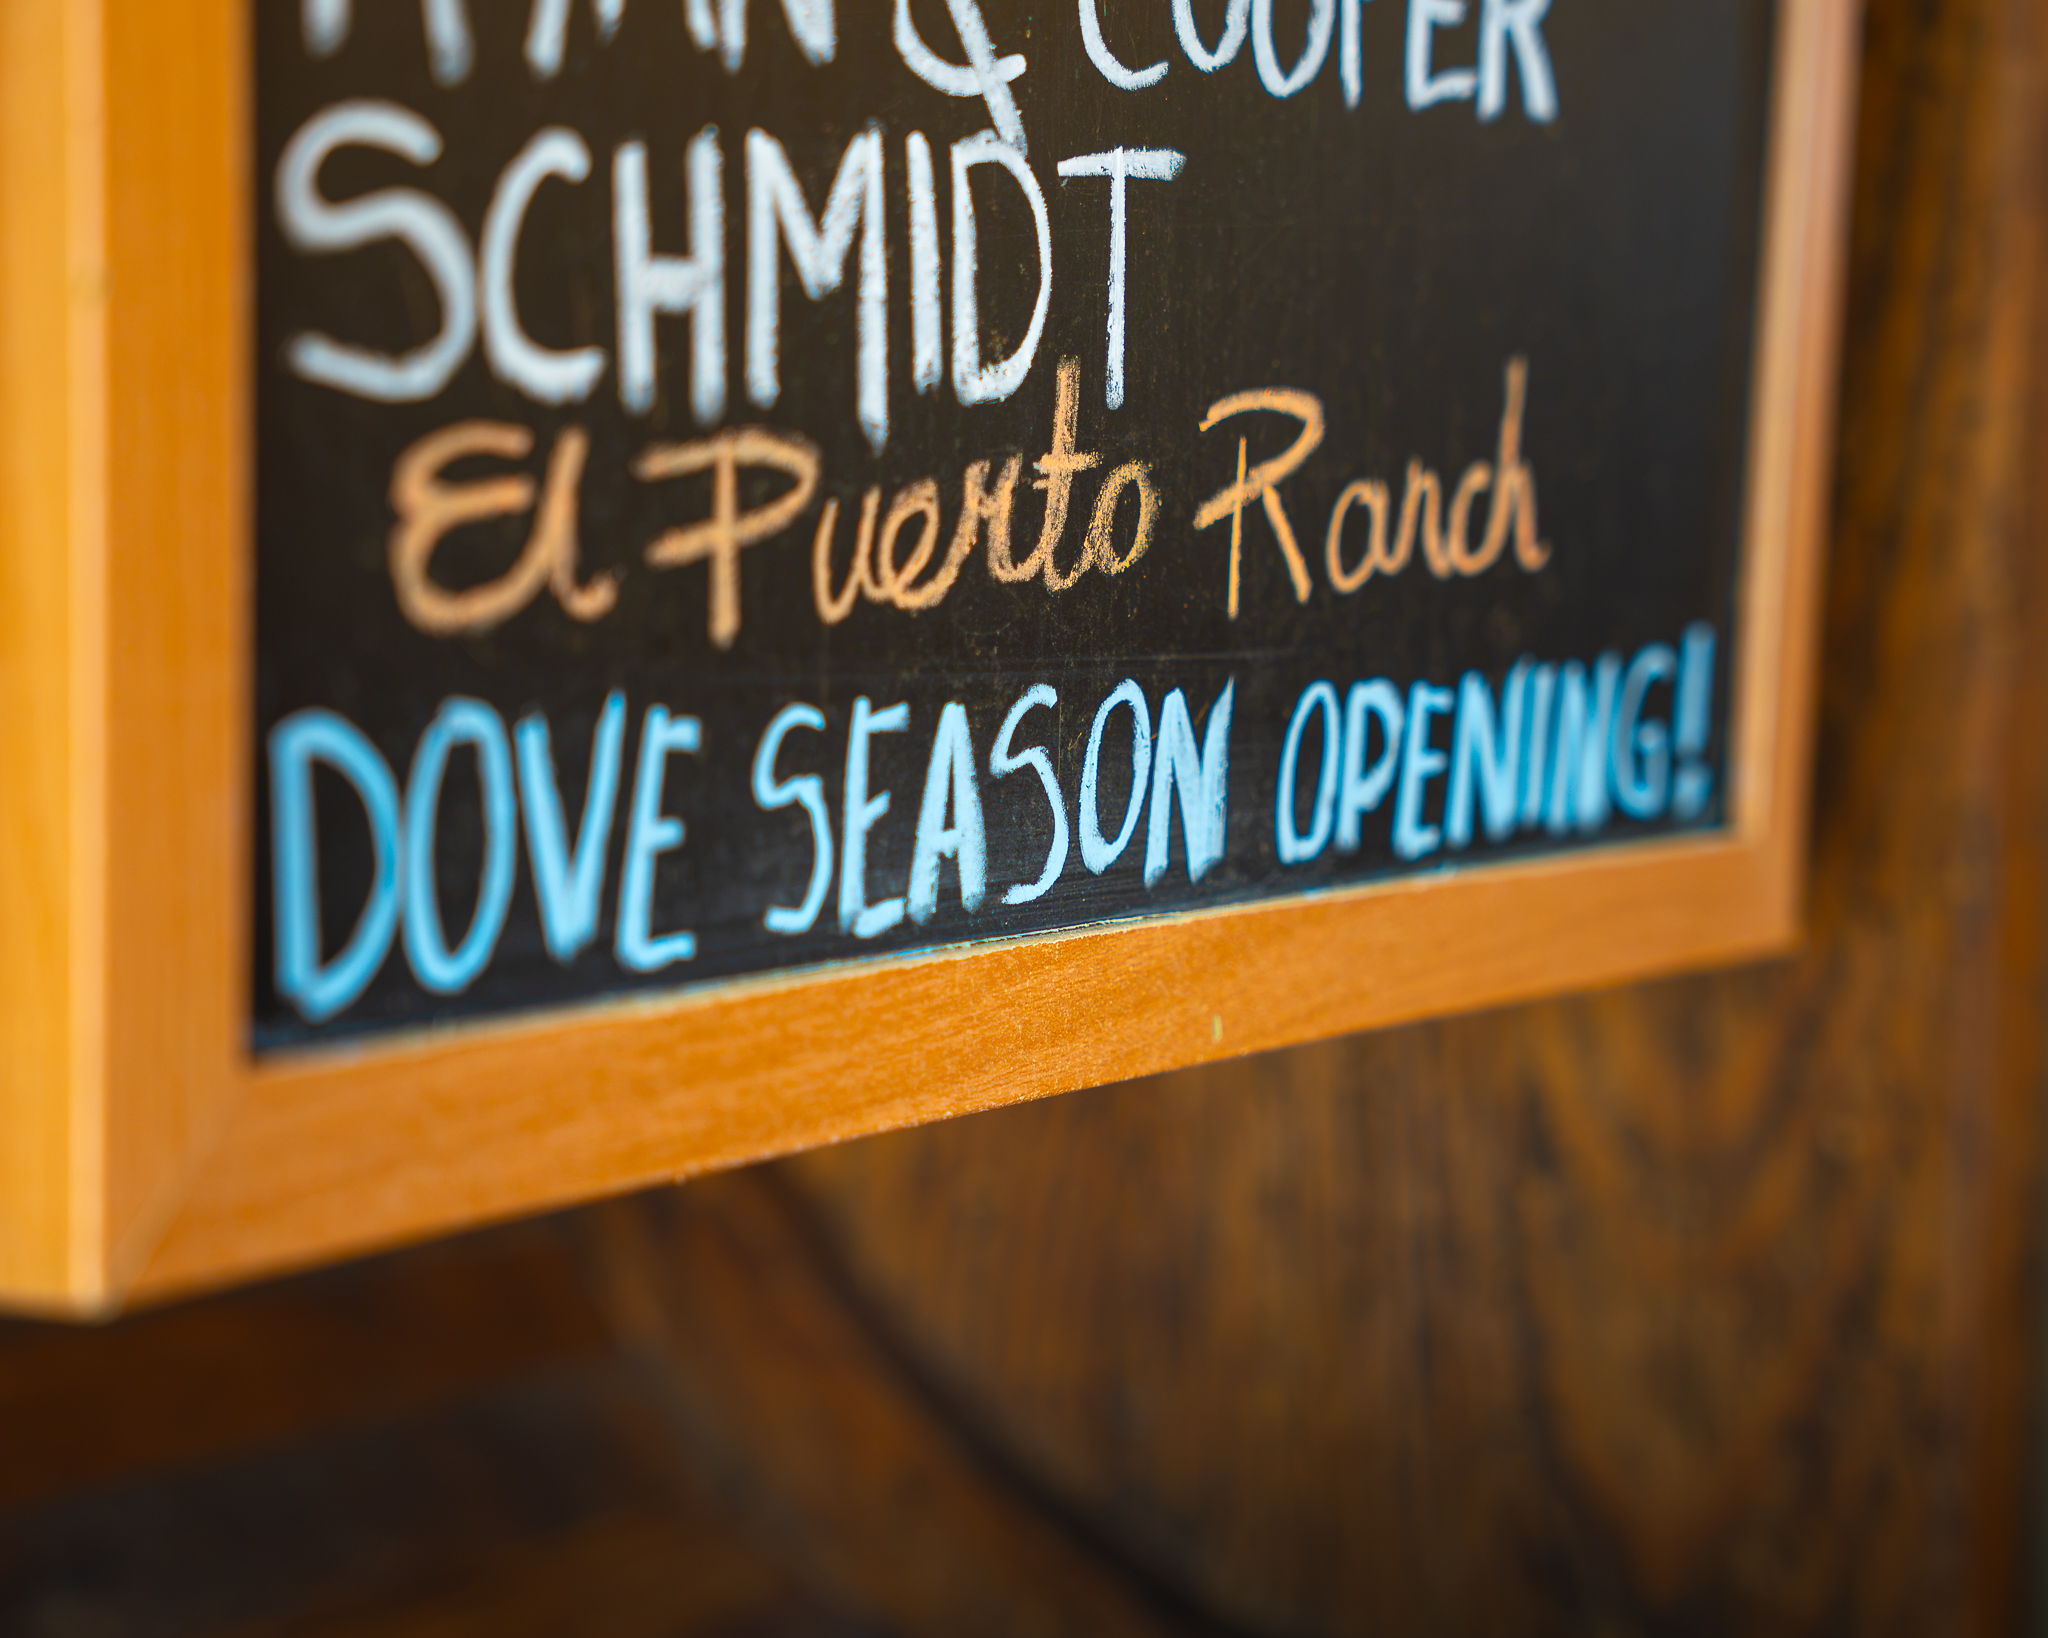 & COOPER
SCHMIDT
El Puerto Ranch
DOVE SEASON OPENING!